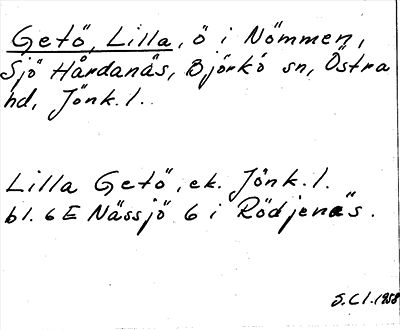 Getö, Lilla, ö i Nömmen,
Sjö Hårdanäs, Björkö sn, Östra
hd, Jönk. l.
Lilla Getö, ek. Jönk. l.
bl. 6E Nässjö 6 i Rödjenäs.
S.C.l. 1958